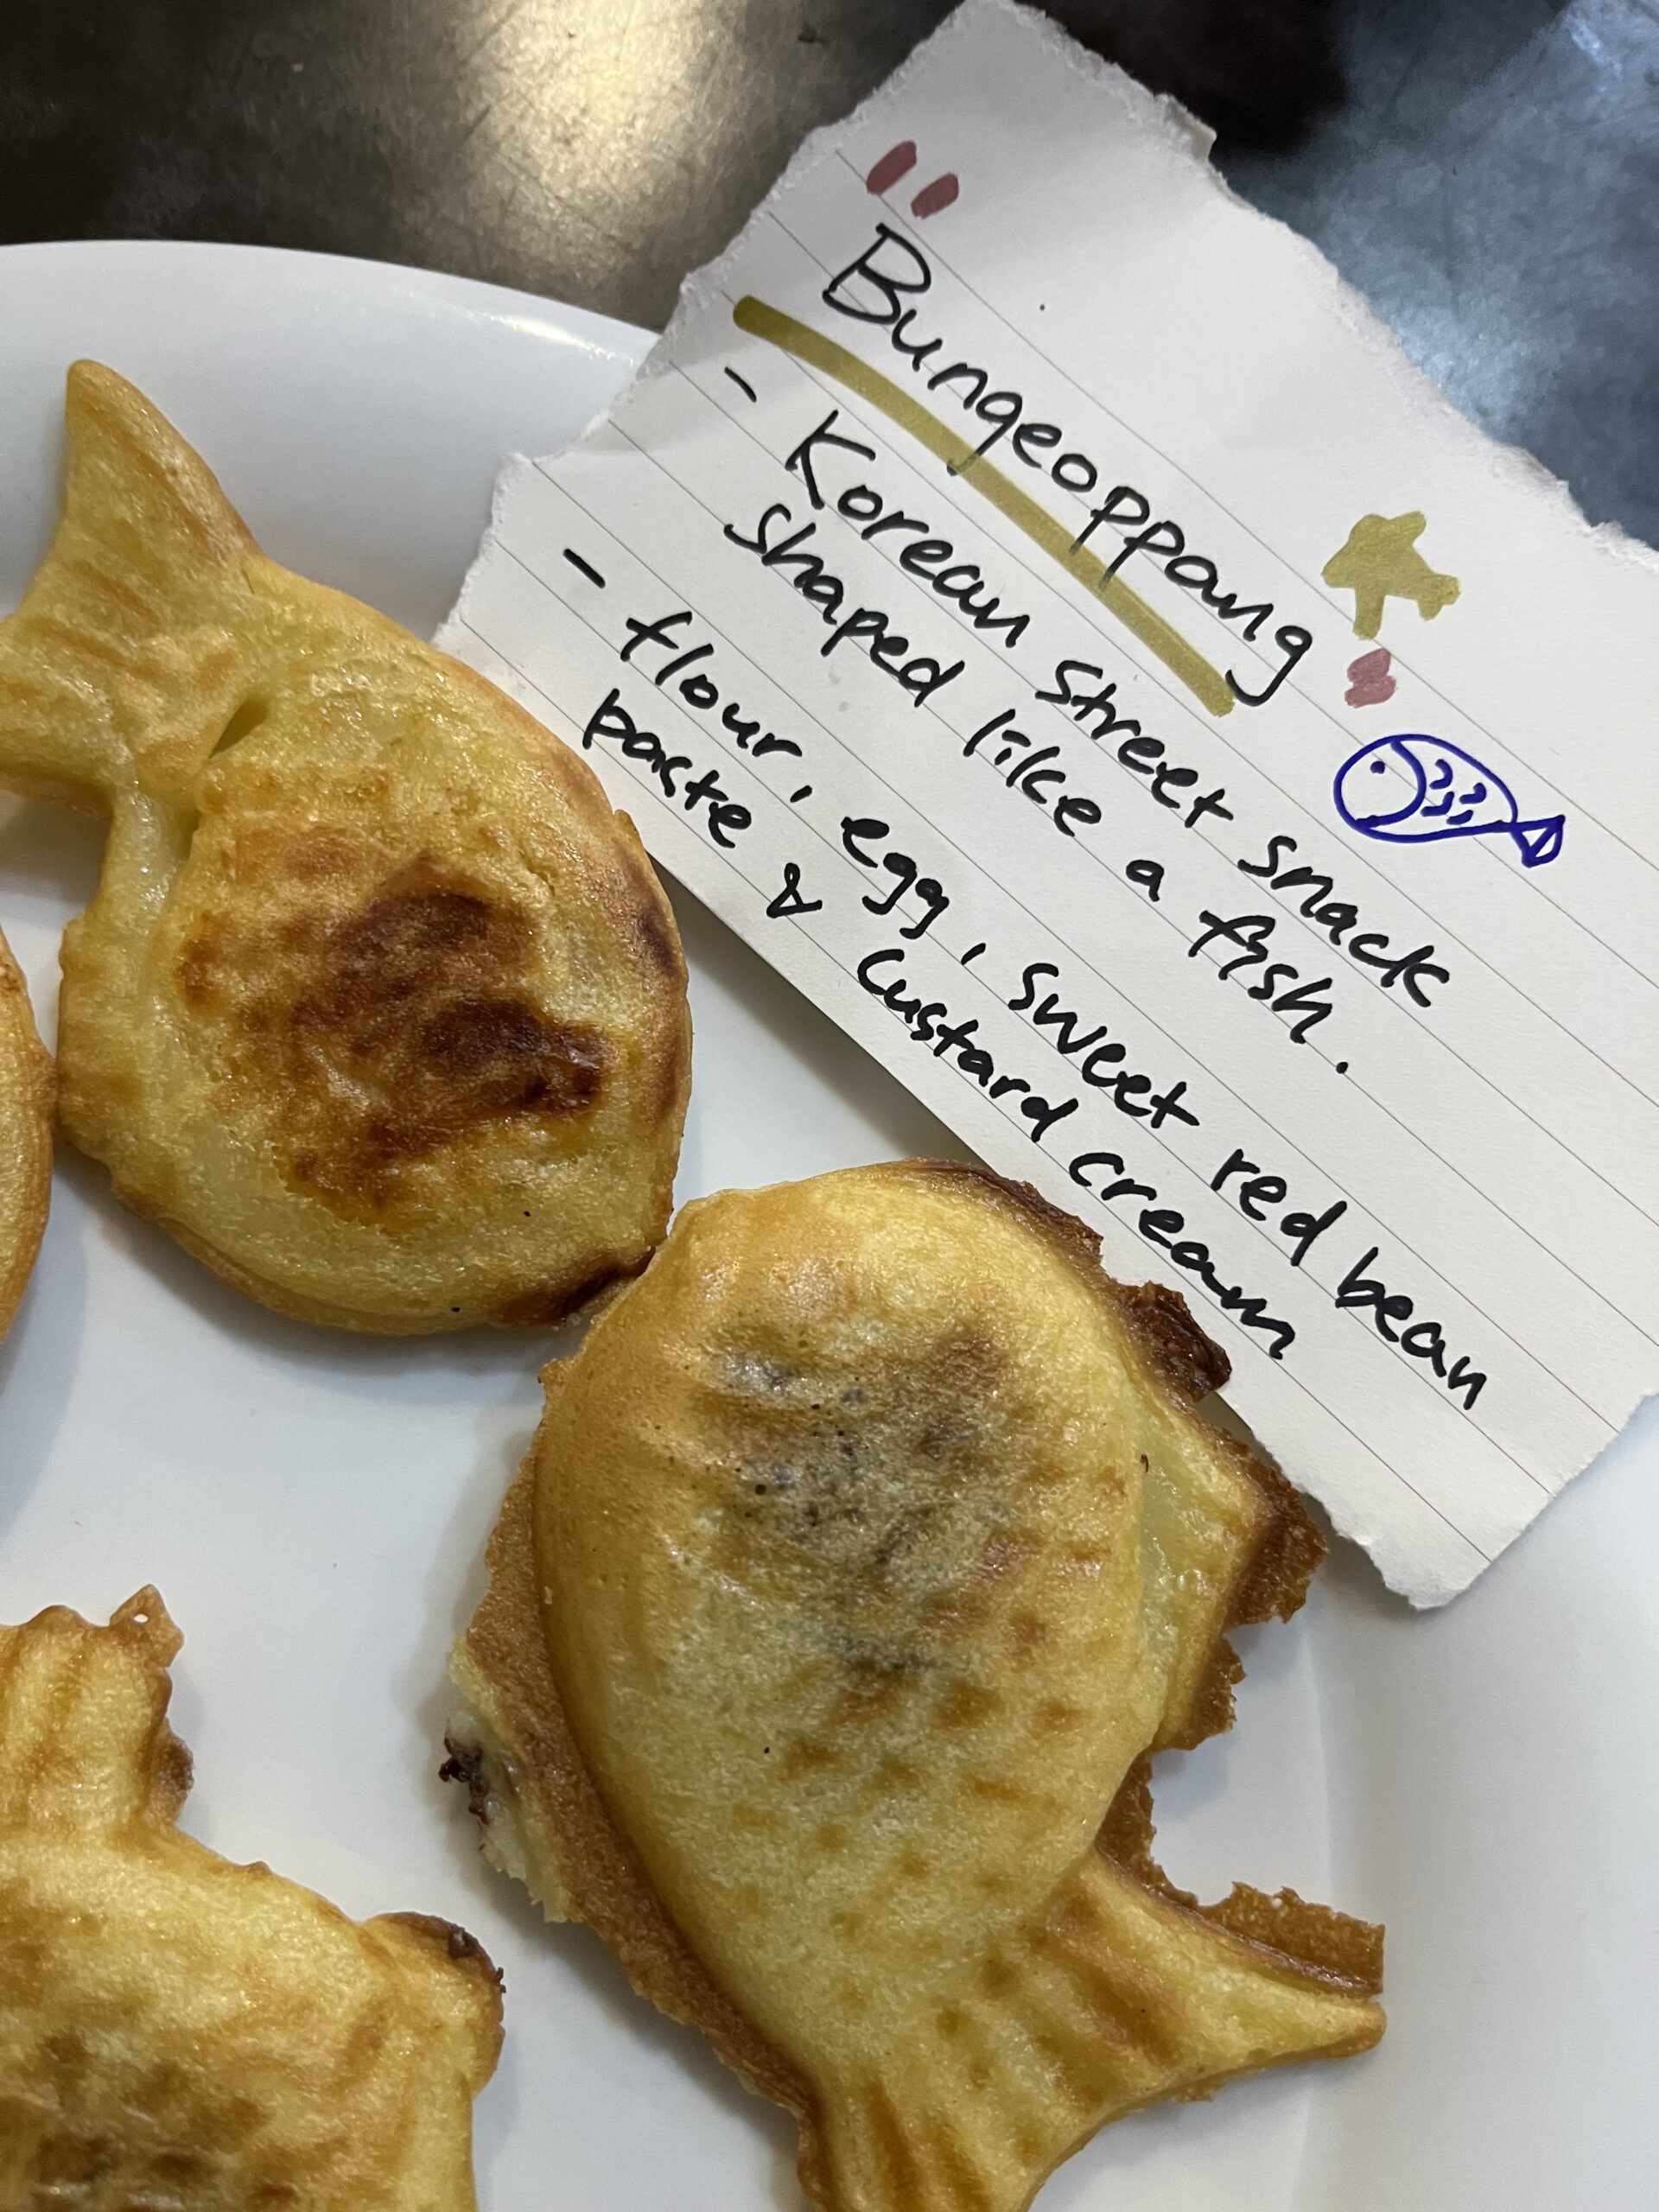 "Bungeoppang
- Korean street snack
shaped like a fish.
- flour, egg, sweet red bean
paste & custard cream